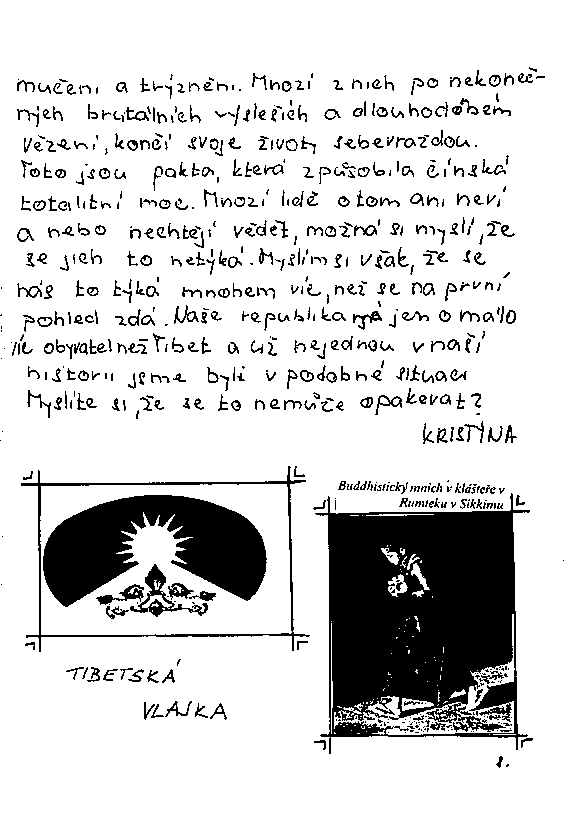 mučeni a trýzněni. Mnozí z nich po nekoneč-
ných brutálních výsleších a dlouhodobém
vězení, končí svoje životy sebevraždou.
Toto jsou fakta, která způsobila čínská
totalitní moc. Mnozí lidé o tom ani neví
a nebo nechtějí vědět, možná si myslí, že
se jich to netýká. Myslím si však, že se
nás to týká mnohem víc, než se na první
pohled zdá. Naše republika má jen o málo
víc obyvatel než Tibet a už nejednou v naší
historii jsme byli v podobné situaci
Myslíte si, že se to nemůže opakovat?
KRISTÝNA
Buddhistický mnich v klášteře v
Rumteku v Sikkimu
TIBETSKÁ
VLAJKA
8.